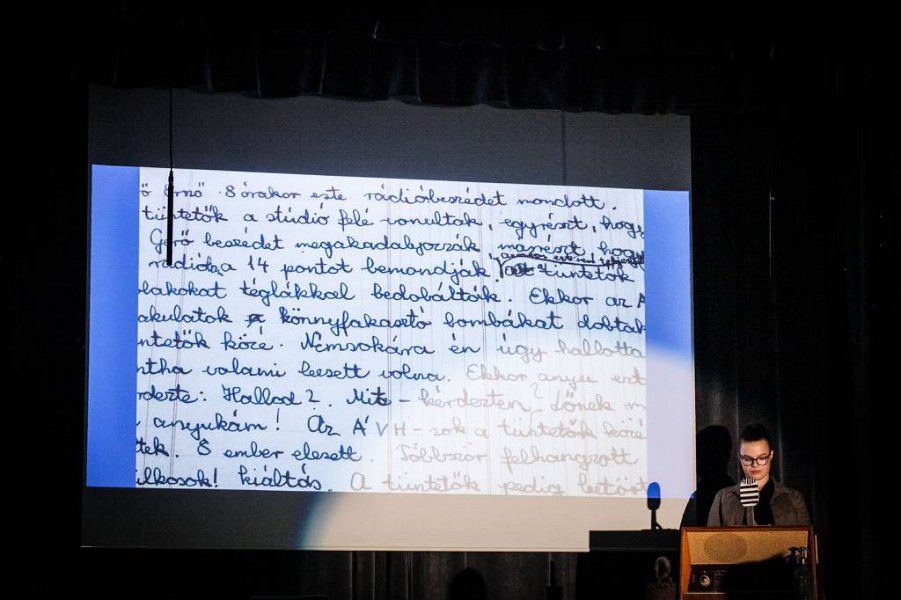 ő Ernő 8 órakor este rádióbeszédet mondott.
tüntetők a stúdió felé vonultak, egyrészt, hogy
Gerő beszédet megakadályozzák másrészt hogy
rádióba a 14 pontot bemondják. tüntetők
blakokat téglákkal bedobálták. Ekkor az Á
akulatok könnyfakasztó bombákat dobtak
ntetők közé. Nemsokára én úgy hallotta
ntha valami leesett volna. Ekkor anyu ezt
rdezte: Hallod? Mit? - kérdeztem. Lőnek
anyukám! Az ÁVH-sok a tüntetők közé
tek. 8 ember elesett. Többször felhangzott
ilkosok! kiáltás. A tüntetők pedig